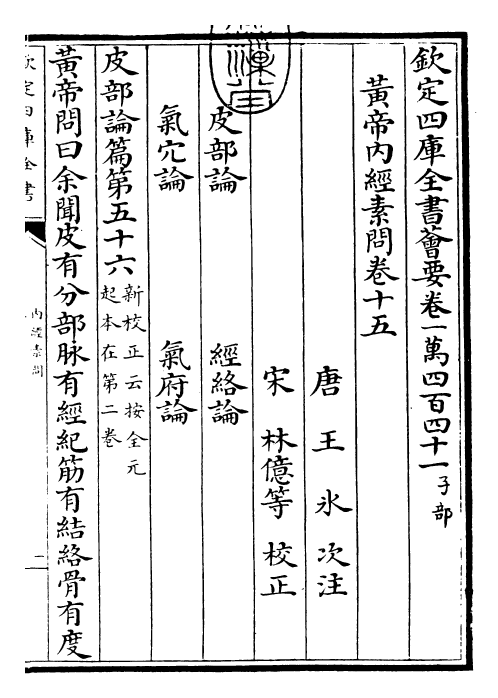 欽定四庫全書薈要卷一萬四百四十一子部
黃帝內經素問卷十五
唐 王 氷 次注
宋 林億等 校正
皮部論 經絡論
氣穴論 氣府論
皮部論篇第五十六新校正云按全元
起本在第二卷
黃帝問曰余聞皮有分部脉有經紀筋有結絡骨有度
欽定四庫全書
內經素問